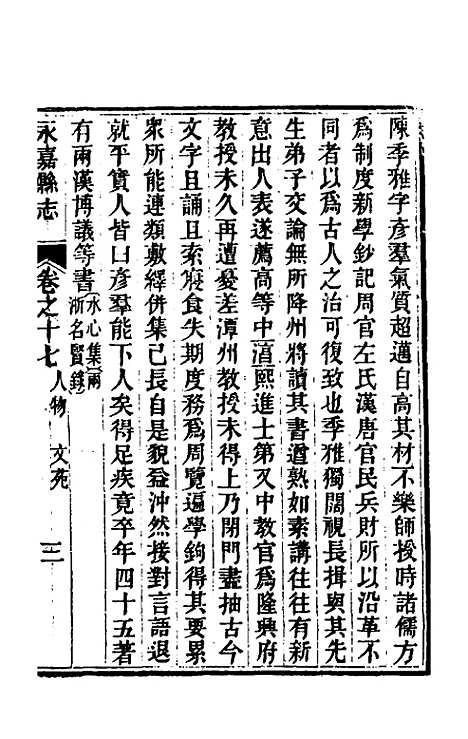 陳季雅字彥羣氣質超邁自高其材不樂師授時諸儒方
爲制度新學鈔記周官左氏漢唐官民兵財所以沿革不
同者以爲古人之治可復致也季雅獨闊視長揖與其先
生弟子交論無所降州將讀其書遒熟如素講往往有新
意出人表遂薦高等中淳熙進士第又中教官爲隆興府
教授未久再遭憂差潭州教授未得上乃閉門盡抽古今
文字且誦且索寢食失期度務爲周覽遍學鉤得其要累
衆所能連類敷繹併集己長自是貌益沖然接對言語退
就平實人皆曰彥羣能下人矣得足疾竟卒年四十五著
有兩漢博議等書水心集兩浙名賢錄
永嘉縣志 卷之十七 人物 文苑 三